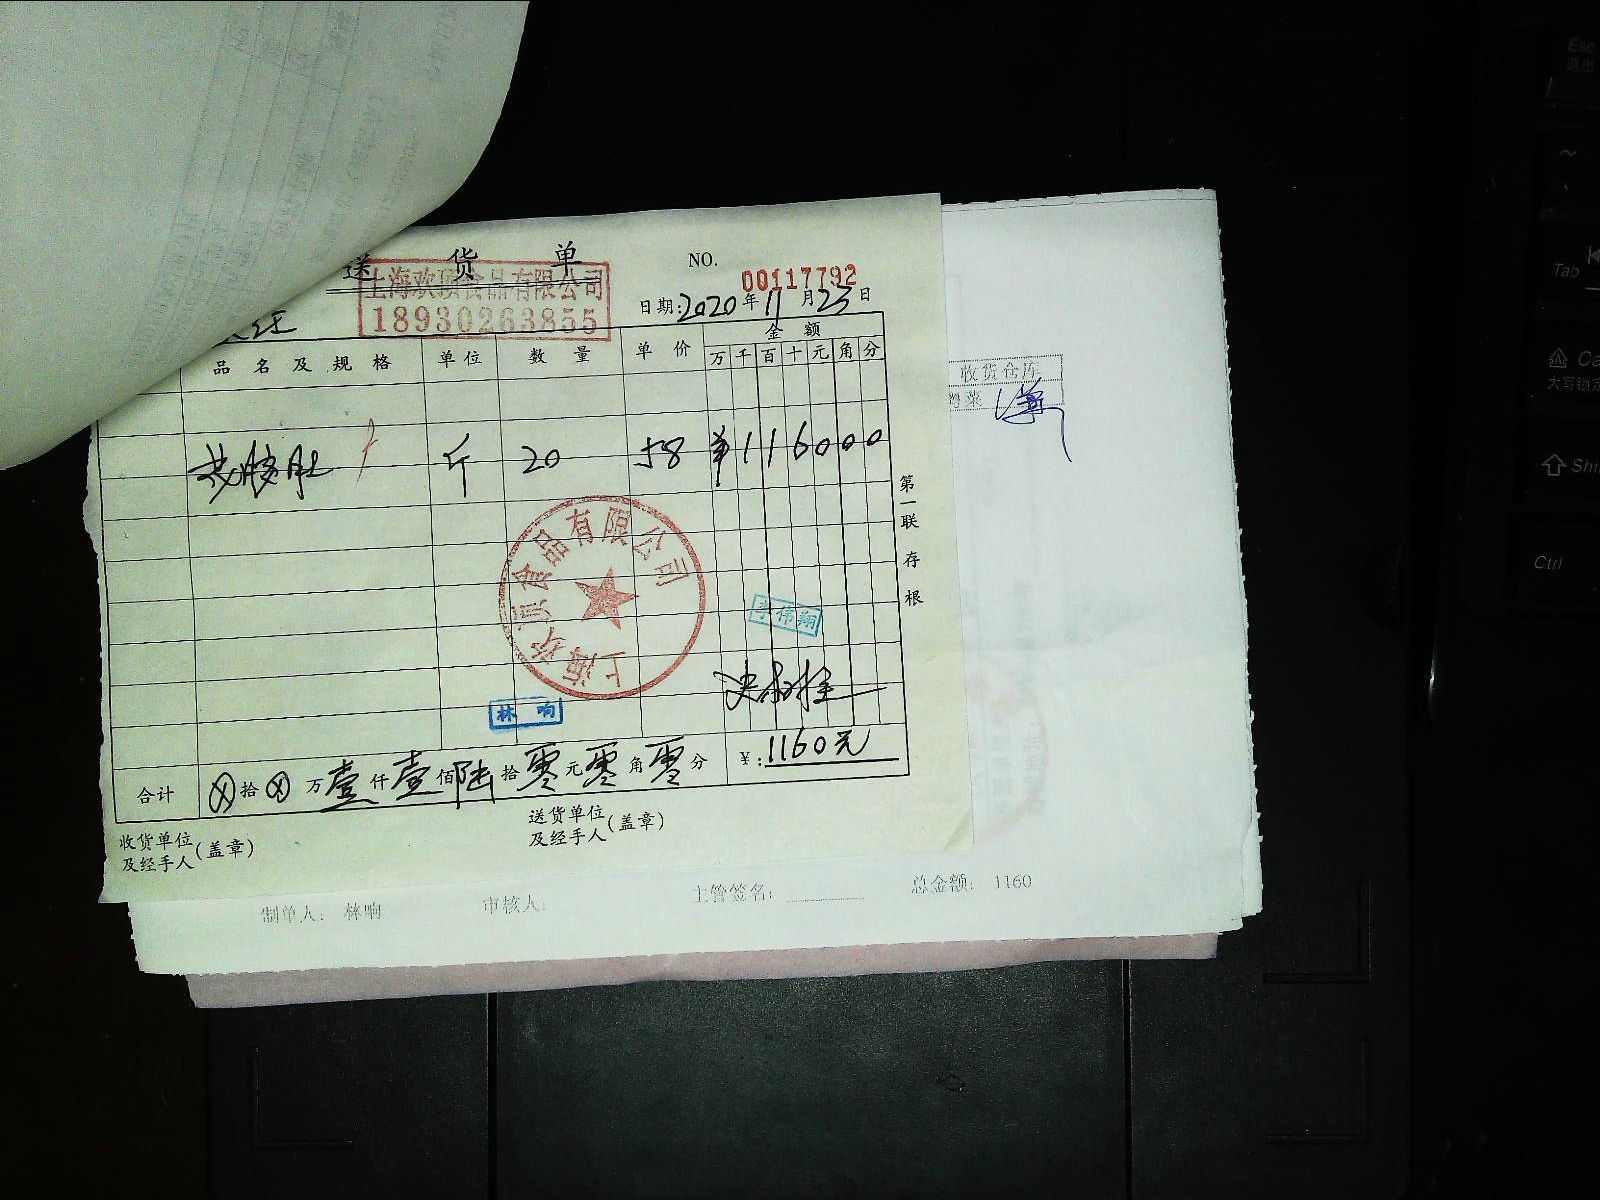 送 货 单
NO. 00117792
上海欢顶食品有限公司
18930263855
日期:2020年11月23日
品名及规格 单位 数量 单价 金额
万 千 百 十 元 角 分
斤 20 58 ¥116000
第一联 存根
上海欢顶食品有限公司
李伟翔
林响
合计 ⊗拾⊗万壹仟壹佰陆拾零元零角零分 ¥:1160元
收货单位及经手人(盖章)
送货单位及经手人(盖章)
收货仓库
制单人: 林响 审核人: 主管签名: 总金额: 1160
Esc
退出
~
Tab
Ca
大写锁定
Shi
Ctrl